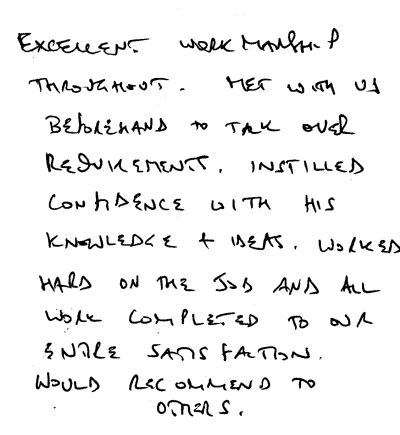 EXCELLENT WORKMANSHIP
THROUGHOUT. MET WITH US
BEFOREHAND TO TALK OVER
REQUIREMENTS. INSTILLED
CONFIDENCE WITH HIS
KNOWLEDGE + IDEAS. WORKED
HARD ON THE JOB AND ALL
WORK COMPLETED TO OUR
ENTIRE SATISFACTION.
WOULD RECOMMEND TO
OTHERS.